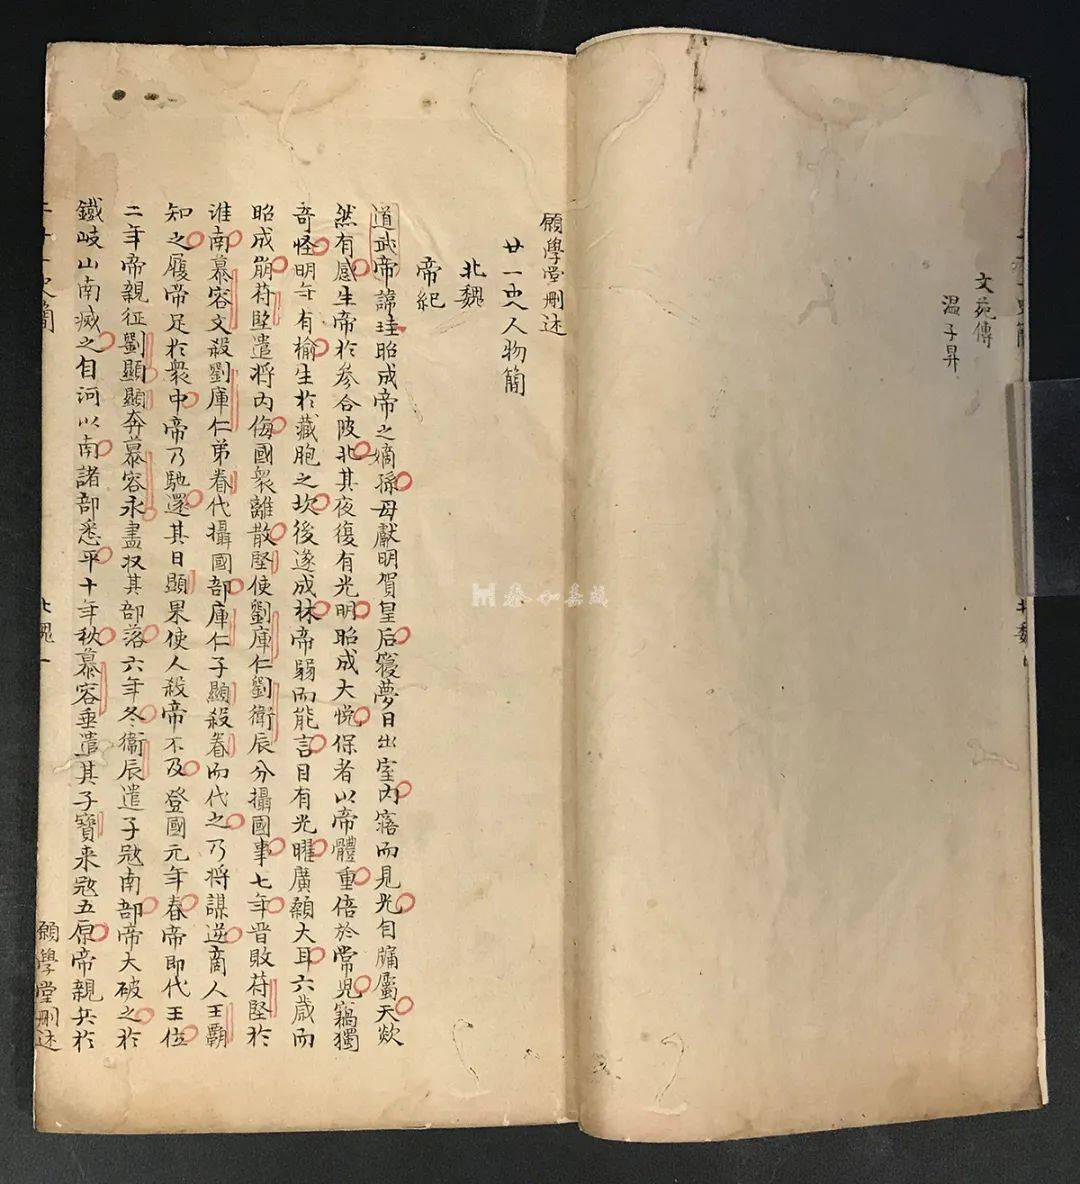 文苑傳
溫子昇
願學堂刪述
廿一史人物簡
北魏
帝紀
道武帝諱珪昭成帝之嫡孫母獻明賀皇后寢夢日出室內寤而見光自牖屬天欻
然有感生帝於參合陂北其夜復有光明昭成大悅保者以帝體重倍於常児竊獨
奇怪明年有榆生於藏胞之坎後遂成林帝弱而能言目有光曜廣顙大耳六歲而
昭成崩苻堅遣將內侮國衆離散堅使劉庫仁劉衛辰分攝國事七年晋敗苻堅於
淮南慕容文殺劉庫仁弟眷代攝國部庫仁子顯殺眷而代之乃將謀逆商人王霸
知之履帝足於衆中帝乃馳還其日顯果使人殺帝不及登國元年春帝即代王位
二年帝親征劉顯顯奔慕容永盡収其部落六年冬衞辰遣子宼南部帝大破之於
鐵岐山南滅之自河以南諸部悉平十年秋慕容垂遣其子寶来宼五原帝親兵於
二十一史簡
北魏一
願學堂刪述
泰和嘉成